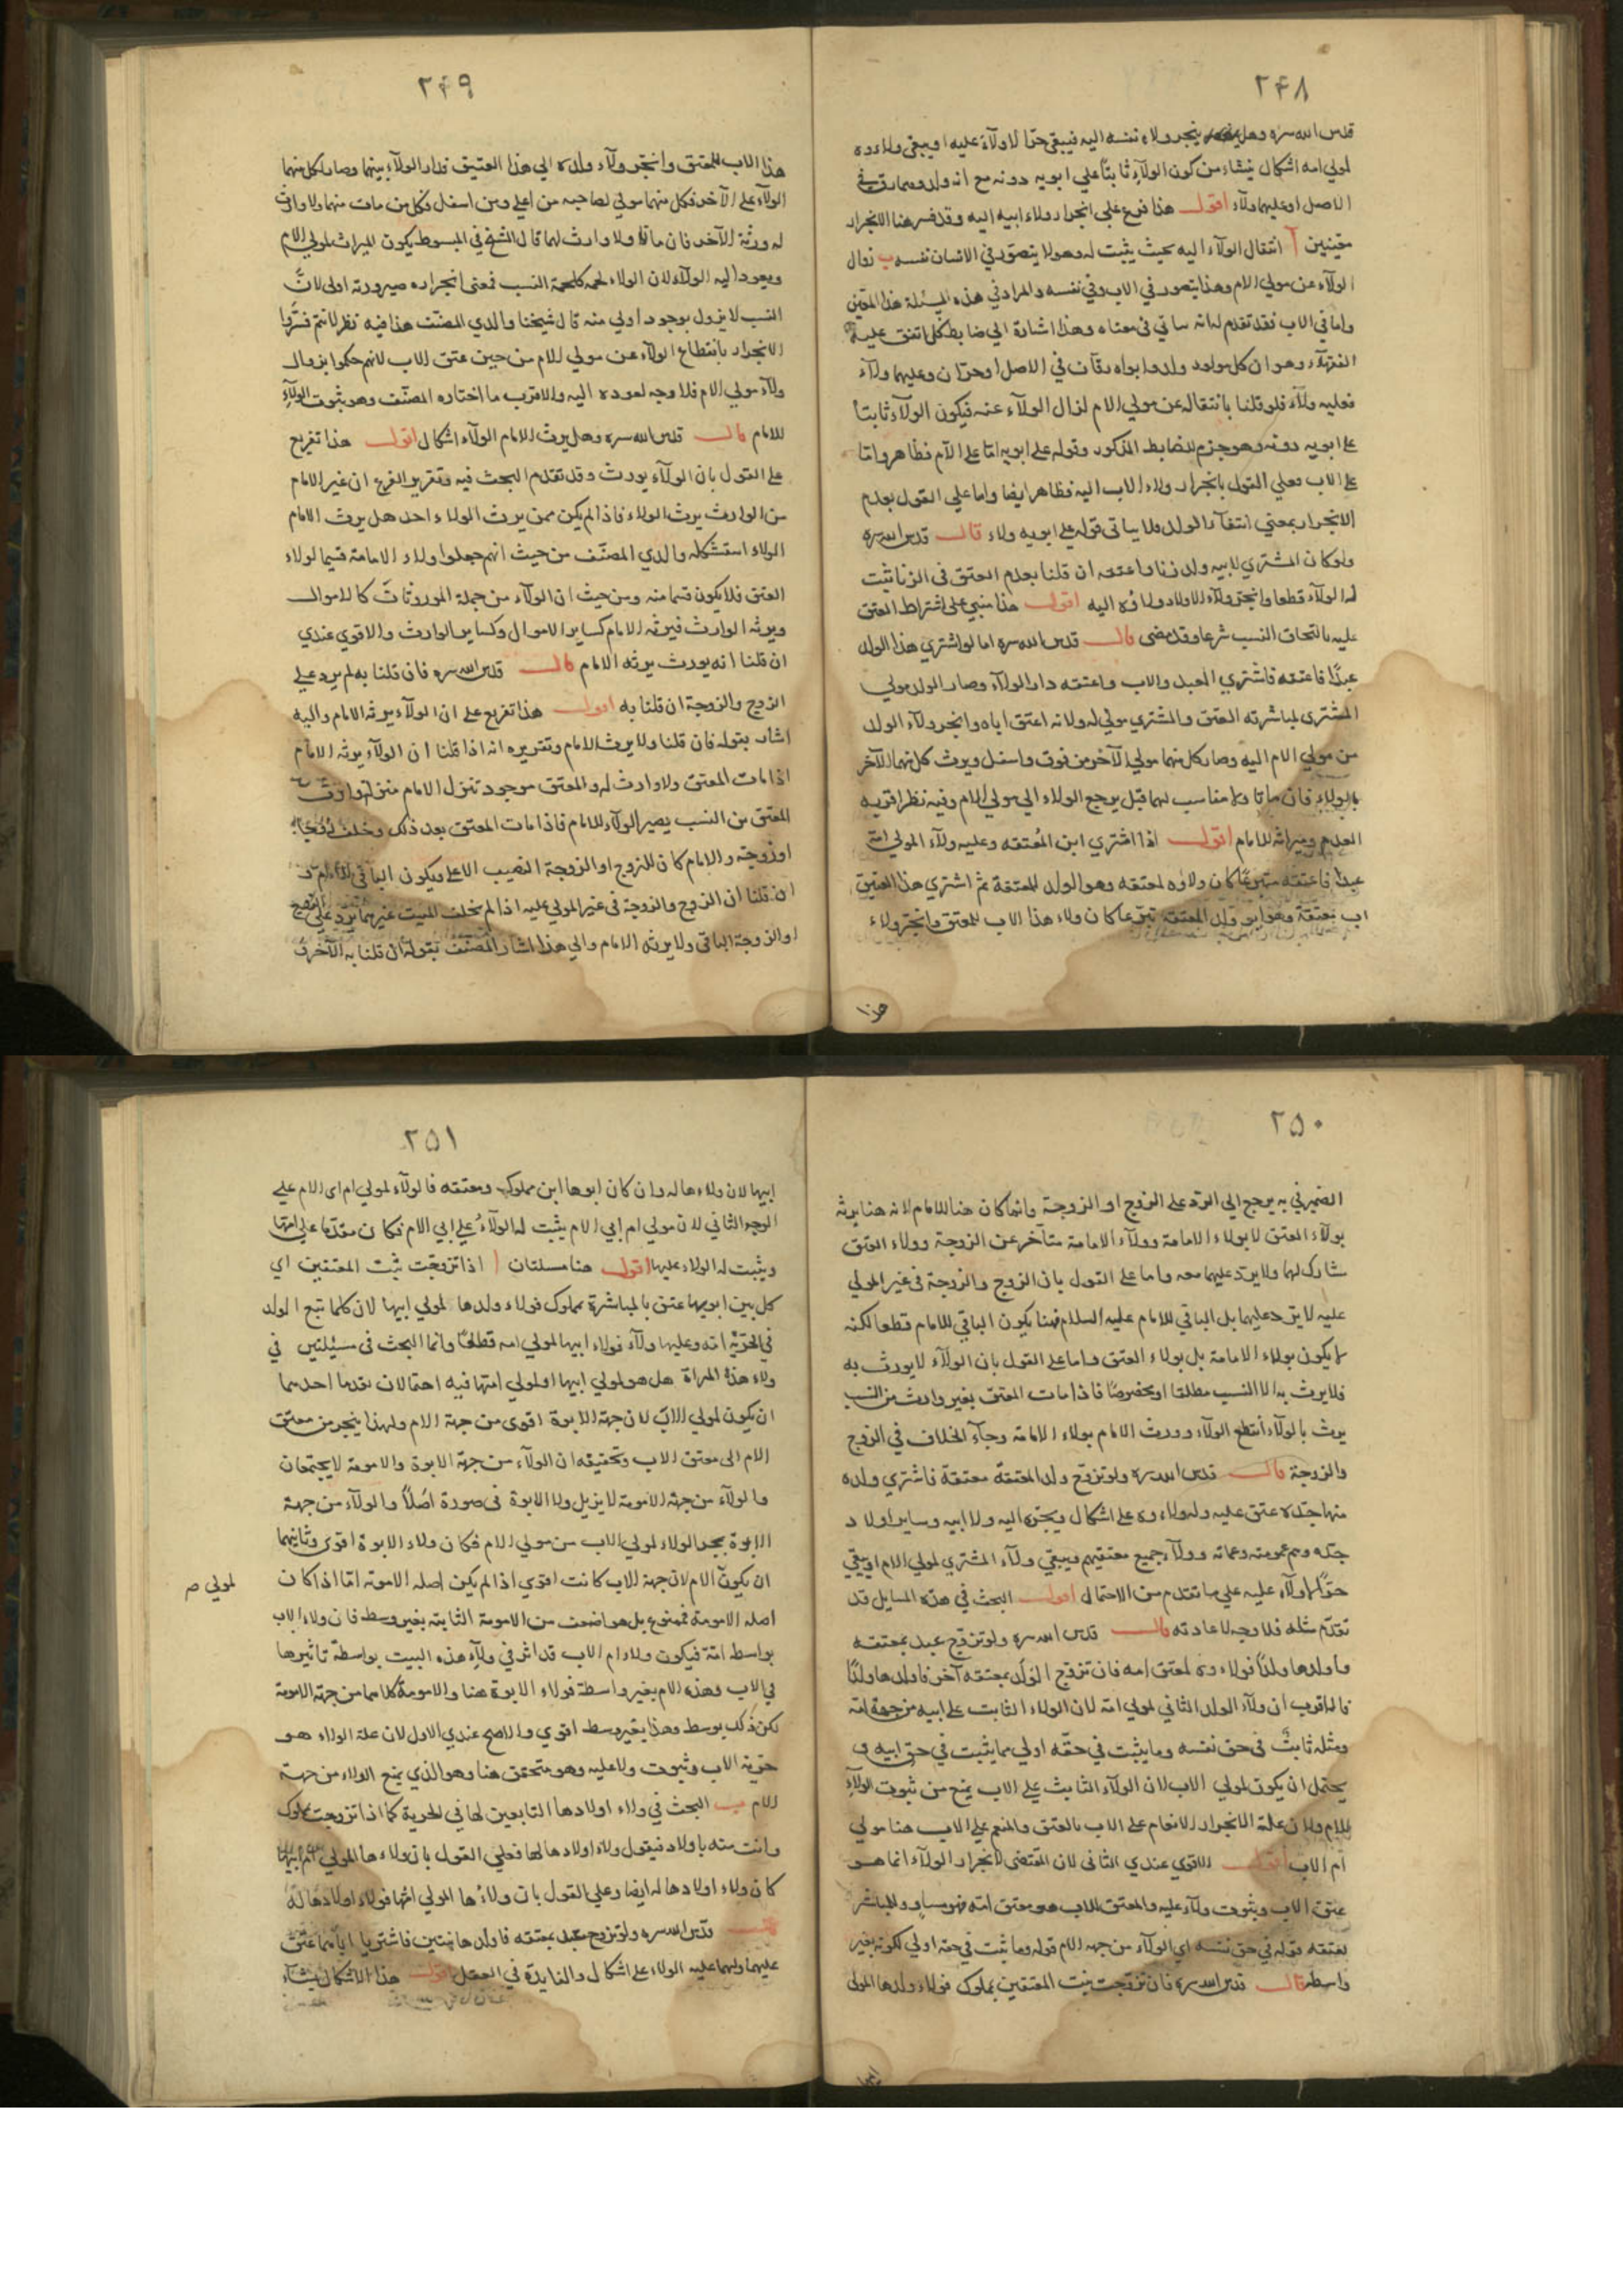 ٢۴٨
قدس الله سره وهل ينجر ولاء نفسه اليه فيبقى حرا لا ولآء عليه او يبقى ولاءوه
لمولي امه اشكال ينشاء من كون الولآء ثابتا علي ابويه دونه مع انه ولد وهما رق في
الاصل او عليهما ولآء اقول هذا فرع علي انجرار ولاء ابيه اليه وقد فسر هنا الانجرار
بمعنيين آ انتقال الولآء اليه بحيث يثبت له وهو لا يتصور في الانسان نفسه ب زوال
الولآء عن مولي الام وهذا يتصور في الاب وفي نفسه والمراد في هذه المسئلة هذا المعني
واما في الاب فقد تقدم لمانه ساتي في معناه وهذا اشارة الي ضابط كلي اتفق عليه
الفقهآء وهو ان كل مولود ولد وابواه رقان في الاصل او حران وعليهما ولآء
فعليه ولآء فلو قلنا بانتقاله عن مولي الام لزال الولآء عنه فيكون الولآء ثابتا
على ابويه دونه وهو جزم للضابط المذكور وقوله على ابويه اما على الام فظاهر واما
على الاب فعلي القول بانجرار ولاء الاب اليه فظاهر ايضا واما علي القول بعدم
الانجرار بمعني انتفآء الولد فلا يباتى قوله على ابويه ولاء قال قدس الله سره
ولو كان المشتري لابيه ولد زنا واعتقه ان قلنا بعدم العتق في الزنا ثبت
له الولآء قطعا وانجر ولآء الاولاد ولاؤه اليه اقول هذا مبني على اشتراط العتق
عليه بالتحاق النسب شرعا وقد مضى قال قدس الله سره اما لو اشتري هذا الولد
عبدا فاعتقه فاشتري العبد والاب واعتقه دار الولآء وصار الولد مولي
المشتري لمباشرته العتق والمشتري مولي له ولانه اعتق اباه وانجر ولآء الولد
من مولي الام اليه وصار كل منهما مولي الآخر من فوق واسفل ويرث كل منهما الآخر
بالولاء فان ماتا ولا مناسب لهما قبل يرجع الولاء الى مولي الام وفيه نظر اقربه
العدم وميراثه للامام اقول اذا اشتري ابن المعتقه وعليه ولآء المولي امه
عبدا فاعتقه متبرعا كان ولاوه لمعتقه وهو الولد للمعتقة ثم اشتري هذا العتيق
اب معتقة وهو ابو ولد المعتقه تبرعا كان ولاء هذا الاب للمعتق وانجر ولاء
هذا
٢۴٩
هذا الاب للمعتق وانجر ولآء ولده الي هذا العتيق فدار الولآء بينهما وصار لكل منهما
الولآء على الآخر فكل منهما مولي لصاحبه من اعلي ومن اسفل فكل من مات منهما ولا وارث
له ورثه الآخر فان ماتا ولا وارث لهما قال الشيخ في المبسوط يكون الميراث لمولي الام
ويعود اليه الولآء لان الولاء لحمه كلحمة النسب فمعنى انجراره صيرورته اولى لان
النسب لا يزول بوجود اولي منه قال شيخنا والدي المصنف هذا فيه نظر لانهم فسروا
الانجرار بانقطاع الولآء عن مولي الام من حين عتق الاب لانهم حكموا بزوال
ولآء مولي الام فلا وجه لعوده اليه والاقرب ما اختاره المصنف وهو ثبوت الولآء
للامام قال قدس الله سره وهل يرث الامام الولآء اشكال اقول هذا تفريع
على القول بان الولآء يورث وقد تقدم البحث فيه وتقرير الفرع ان غير الامام
من الوارث يرث الولاء فاذا لم يكن ممن يرث الولاء احد هل يرث الامام
الولاء استشكله والدي المصنف من حيث انهم جعلوا ولاء الامامة قسيما لولاء
العتق فلا يكون قسما منه ومن حيث ان الولآء من جملة الموروثات كالاموال
ويرثه الوارث فيرثه الامام كساير الاموال وكساير الوارث والاقوي عندي
ان قلنا انه يورث يرثه الامام قال قدس الله سره فان قلنا به لم يرد على
الزوج والزوجة ان قلنا به اقول هذا تفريع على ان الولآء يرثه الامام واليه
اشار بقوله فان قلنا ولا يرث الامام وتقريره انه اذا قلنا ان الولآء يرثه الامام
اذا مات المعتق ولا وارث له والمعتق موجود تنزل الامام منزلة وارث
المعتق من النسب يصير الولآء للامام فاذا مات المعتق بعد ذلك وخلف زوجا
او زوجة والامام كان للزوج او الزوجة النصيب الاعلى ويكون الباقي للامام
ان قلنا ان الزوج والزوجة في غير المولي عليه اذا لم يخلف الميت غيرهما يرد على الزوج
او الزوجة الباقي ولا يرثه الامام والي هذا اشار المصنف بقوله ان قلنا به الآخر
٢۵٠
الضمير في به يرجع الي الرد على الزوج او الزوجة وانما كان هنا للامام لانه هنا يرثه
بولآء العتق لا بولاء الامامة وولآء الامامة متاخر عن الزوجة وولاء العتق
شارك لهما ولا يرد عليهما معه واما على القول بان الزوج والزوجة في غير المولي
عليه لا يرد عليهما بل الباقي للامام عليه السلام فهنا يكون الباقي للامام قطعا لكنه
لا يكون بولاء الامامة بل بولاء العتق واما على القول بان الولآء لا يورث به
فلا يرث به الا النسب مطلقا او مخصوصا فاذا مات المعتق بغير وارث من النسب
يرث بالولآء انقطع الولآء وورث الامام بولاء الامامة وجآء الخلاف في الزوج
والزوجة قال قدس الله سره ولو تزوج ولد المعتقة معتقة فاشتري ولده
منها جده عتق عليه وله ولاءوه على اشكال ويجره اليه ولا ابيه وساير اولاد
جده وهم عمومته وعماته وولآء جميع معتقيهم ويبقى ولآء المشتري لمولي الام او يبقي
حرا لا ولآء عليه على ما تقدم من الاحتمال اقول البحث في هذه المسايل قد
تقدم مثله فلا وجه لاعادته قال قدس الله سره ولو تزوج عبد بمعتقه
واولدها ولدا فولاءوه لمعتق امه فان تزوج الولد بمعتقه آخر فاولدها ولدا
فالاقرب ان ولآء الولد الثاني لمولي امه لان الولاء الثابت على ابيه من جهة امه
ومثله ثابت في حق نفسه وما يثبت في حقه اولي مما يثبت في حق ابيه و
يحتمل ان يكون لمولي الاب لان الولآء الثابت على الاب يمنع من ثبوت الولآء
للام ولان علة الانجرار الانعام على الاب بالعتق والمنعم علي الاب هنا مولي
ام الاب اقول الاقوي عندي الثاني لان المقتضي لانجرار الولآء انما هو
عتق الاب وثبوت ولآء عليه والمعتق للاب هو معتق امه فهو مساو والمباشر
لعتقه قوله في حق نفسه اي الولآء من جهه الام قوله وما ثبت في حقه اولي لكونه بغير
واسطه قال قدس الله سره فان تزوجت بنت المعتقين بمملوك فولاء ولدها لمولى
ابيها
٢۵١
ابيها لان ولاءها له وان كان ابوها ابن مملوك ومعتقه فالولآء لمولي ام اي الام على
الوجه الثاني لان مولي ام ابي الام يثبت له الولآء علي ابي الام فكان مقدما على امها
ويثبت له الولاء عليها اقول هنا مسئلتان ا اذا تزوجت بنت المعتقين اي
كل من ابويها عتق بالمباشرة بمملوك فولاء ولدها لمولي ابيها لان كلما تبع الولد
في الحرية امه وعليها ولآء فولاء ابيها لمولي امه قطعا وانما البحث في مسئلتين في
ولاء هذه المراة هل هو لمولي ابيها او لمولي امها فيه احتمالان تقدما احدهما
ان يكون لمولي الاب لان جهة الابوة اقوى من جهة الام ولهذا ينجر من معتق
الام الى معتق الاب وتحقيقه ان الولآء من جهة الابوة والامومة لا يجتمعان
والولآء من جهة الامومة لا يزيل ولا الابوة في صورة اصلا والولآء من جهة
الابوة يجر الولاء لمولي الاب من مولي الام فكان ولاء الابوة اقوى وثانيهما
ان يكون الام لان جهة الاب كانت اقوي اذا لم يكن اصله الامومة اما اذا كان
لمولي ص
اصله الامومة فممنوع بل هو اضعف من الامومة الثابتة بغير وسط فان ولاء الاب
بواسطة امة فيكون ولاء ام الاب قد اثر في ولآء هذه البيت بواسطة تاثيرها
في الاب وهذه الام بغير واسطة فولاء الابوة هنا والامومة كلاهما من جهة الامومة
لكن ذلك بوسط وهذا بغير وسط اقوي والاصح عندي الاول لان علة الولاء هو
حرية الاب وثبوت ولاء عليه وهو متحقق هنا وهو الذي يمنع الولاء من جهة
الام ب البحث في ولاء اولادها التابعين لها في الحرية كما اذا تزوجت مملوك
واتت منه باولاد فنقول ولاء اولادها لها فعلى القول بان ولاءها لمولي ام ابيها
كان ولاء اولادها له ايضا وعلي القول بان ولاءها لمولي امها فولاء اولادها له
قال قدس الله سره ولو تزوج عبد بمعتقه فاولدها بنتين فاشتريا اباهما عتق
عليهما ولهما عليه الولاء على اشكال والفايدة في العقل اقول هذا الاشكال ينشاء